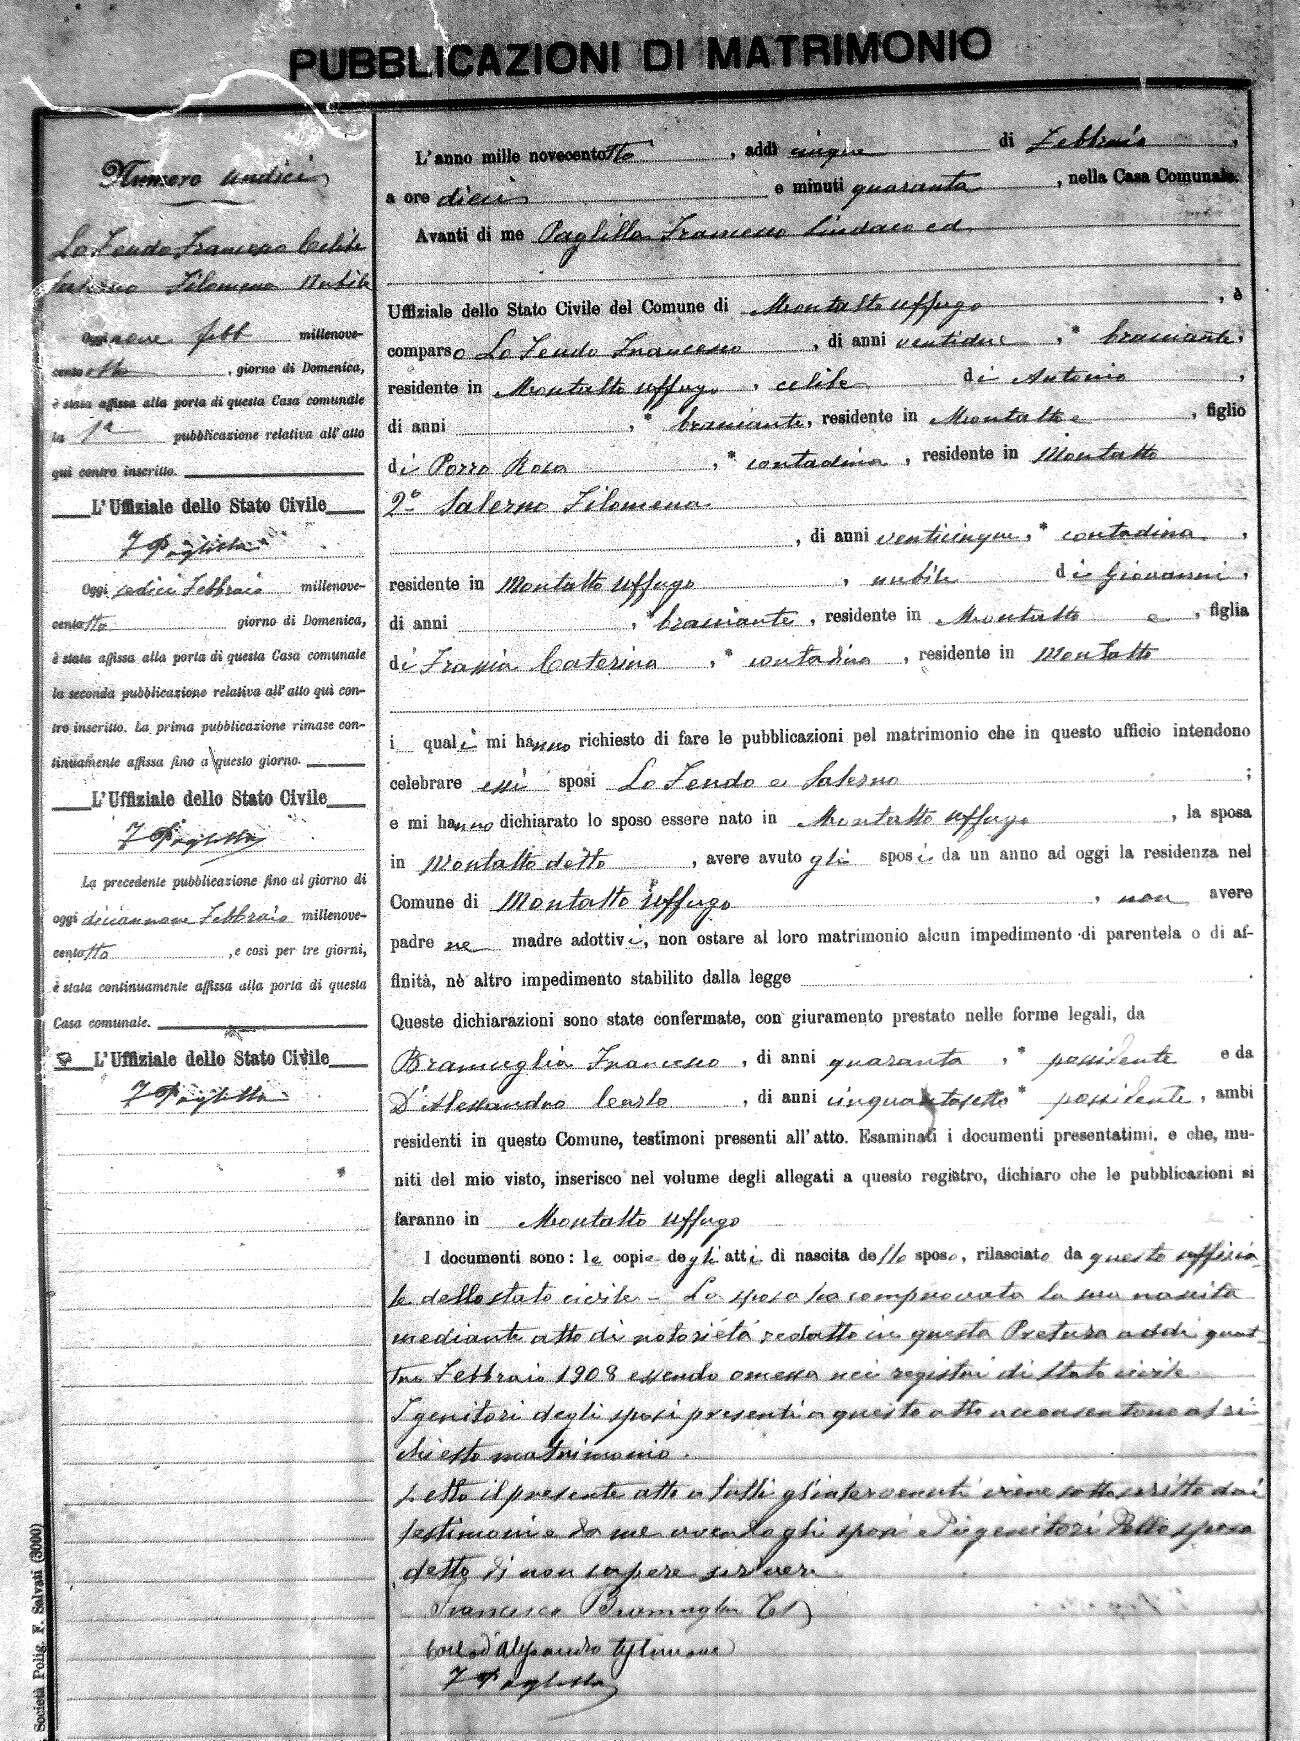 PUBBLICAZIONI DI MATRIMONIO
Numero undici
Lo Tendo Francesco Celibe
Salerno Filomena Nubile
Oggi nove febb millenove-
centotto, giorno di Domenica,
è stata affissa alla porta di questa Casa comunale
la 1ª pubblicazione relativa all'atto
qui contro inscritto.
L'Uffiziale dello Stato Civile
F Paglilla
Oggi sedici Febbraio millenove-
centotto giorno di Domenica,
è stata affissa alla porta di questa Casa comunale
la seconda pubblicazione relativa all'atto qui con-
tro inscritto. La prima pubblicazione rimase con-
tinuamente affissa fino a questo giorno.
L'Uffiziale dello Stato Civile
F Paglilla
La precedente pubblicazione fino al giorno di
oggi diciannove Febbraio millenove-
centotto, e così per tre giorni,
è stata continuamente affissa alla porta di questa
Casa comunale.
L'Uffiziale dello Stato Civile
F Paglilla
Società Polig. F. Salvati (3000)
L'anno mille novecentotto, addì cinque di Febbraio,
a ore dieci e minuti quaranta, nella Casa Comunale.
Avanti di me Paglilla Francesco Sindaco ed
Uffiziale dello Stato Civile del Comune di Montalto Uffugo, è
comparso Lo Tendo Francesco, di anni ventidue, * bracciante,
residente in Montalto Uffugo, celibe di Antonio,
di anni , * bracciante, residente in Montalto e, figlio
di Porro Rosa, * contadina, residente in Montalto
2º Salerno Filomena
, di anni venticinque, * contadina,
residente in Montalto Uffugo, nubile di Giovanni,
di anni , * bracciante, residente in Montalto e, figlia
di Frassia Caterina, * contadina, residente in Montalto
i quali mi hanno richiesto di fare le pubblicazioni pel matrimonio che in questo ufficio intendono
celebrare essi sposi Lo Tendo e Salerno ;
e mi hanno dichiarato lo sposo essere nato in Montalto Uffugo, la sposa
in Montalto detto, avere avuto gli sposi da un anno ad oggi la residenza nel
Comune di Montalto Uffugo, non avere
padre ne madre adottivi, non ostare al loro matrimonio alcun impedimento di parentela o di af-
finità, nè altro impedimento stabilito dalla legge
Queste dichiarazioni sono state confermate, con giuramento prestato nelle forme legali, da
Bramuglia Francesco, di anni quaranta, * possidente e da
D'Alessandro Carlo, di anni cinquantasette * possidente, ambi
residenti in questo Comune, testimoni presenti all'atto. Esaminati i documenti presentatimi, e che, mu-
niti del mio visto, inserisco nel volume degli allegati a questo registro, dichiaro che le pubblicazioni si
faranno in Montalto Uffugo
I documenti sono: le copie degli atti di nascita dello sposo, rilasciato da questo uffizia-
le dello stato civile - La sposa ha comprovata la sua nascita
mediante atto di notorietà redatto in questa Pretura addì quat-
tro Febbraio 1908 essendo omessa nei registri di stato civile
I genitori degli sposi presenti a questo atto acconsentono al ri-
chiesto matrimonio.
Letto il presente atto a tutti gli intervenuti viene sottoscritto dai
testimoni e da me avendo gli sposi e i genitori dello sposo
detto di non sapere scrivere
Francesco Bramuglia
Carlo d'Alessandro testimone
F Paglilla